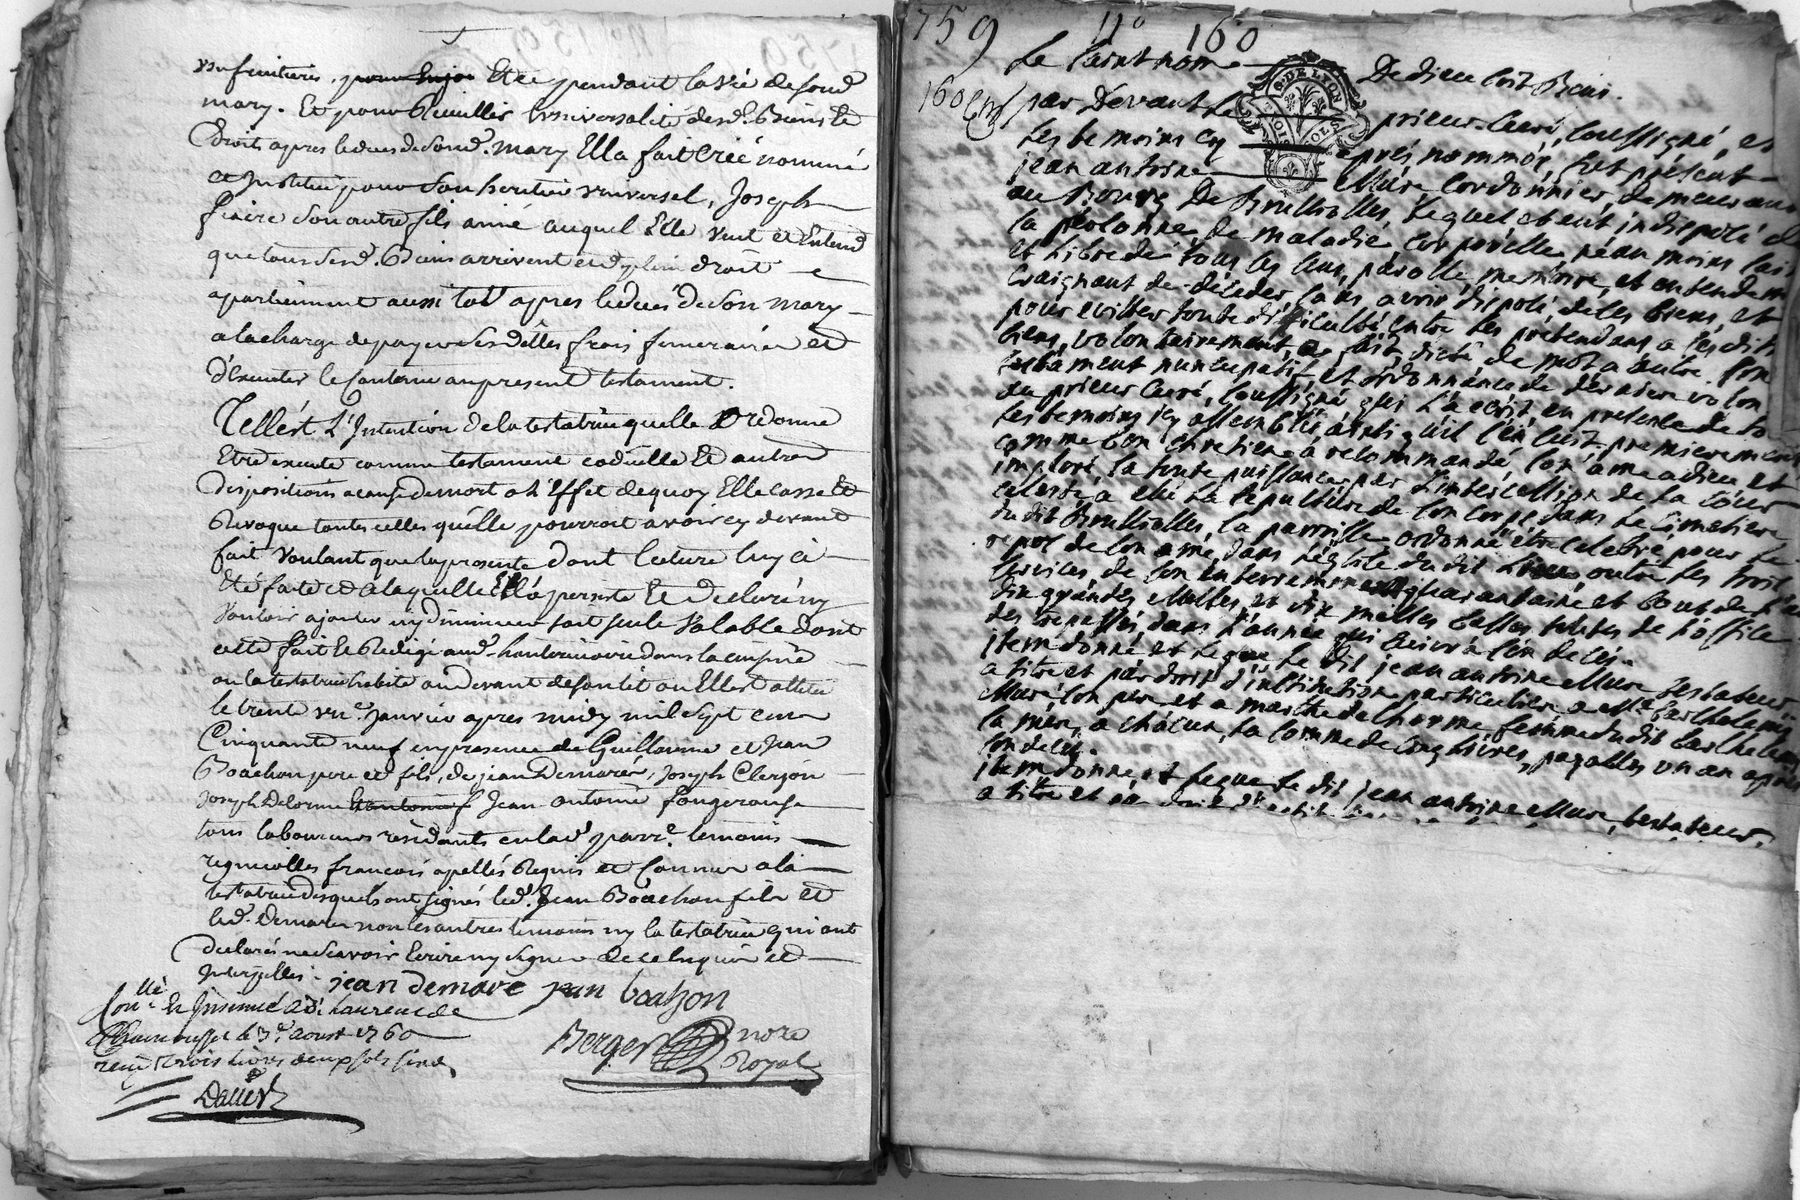 usufruitiere, pour Enjoi Etre pendant la vie de son d
mary. Et pour Ceuillir L'universalité desd. Biens le
Droit apres le deces de Sond. mary Ella fait Créé nommé
et Institué pour Son heritier universel, Joseph
fraire Son autre fils ainé auquel Elle veut et Entend
que tous Sesd. Biens arrivent et de plein droit
apartiennent aussi tot apres le deces de Son mary
a la charge de payer Ses dettes frais funeraires et
d'Executer le Contenu au present testament.
Tellest L'Intention de la testatrice quelle Ordonne
Etre executé comme testament codicille Et autres
Dispositions a cause de mort a L'Effet de quoy Elle casse Et
Revoque toutes celles qu'elle pourroit avoir cy devant
fait Voulant que la presente dont lecture luy a
Eté faite et a laquelle Ell'a persisté Et declaré ny
Vouloir ajouter ny diminuer soit seule Valable dont
acte fait Et Redigé aud. dans la
ou la testatrice habite au devant de son lit ou Ell'est
le trente un. Janvier apres midy mil Sept cens
Cinquante neuf en presence de Guillaume et Jean
Boachon pere et fils, de jean Demare, Joseph Clerjon
Joseph Delorme Jean antoine fougerouse
tous laboureurs residants en lad. parr. temoins
regnicolles francois apellés Requis et Connus a la
testatrice desquels ont signés led. Jean Boachon fils et
led. Demare non les autres temoins ny la testatrice qui ont
declarés ne Scavoir Ecrire ny Signer de ce Enquis et
Interpellés. jean demare jean boachon
Con.llé Et Insinué a St. Laurent de
Chamousset le 3e aoust 1760
reçu trois livres deux sols six d.
Berger nore
Royal
Dallex
759 no 160
160 Le saint nom De dieu soit Beni.
G. DE LYON
par Devant Le prieur-Curé, soussigné, et
Les temoins cy après nommés, fut présent
jean antoine Mure Cordonnier, demeurant
au Bourg De Brullioles, Lequel etant indisposé de
sa personne de maladie corporelle néanmoins sain
et Libre de tous ses sens, parolle, memoire, et entendem
Craignant de déceder sans avoir disposé de ses biens, et
pour eviter toute difficulté, entre les pretendans a ses dits
biens, volontairement, a fait, dicté de mot a autre son
testament nuncupatif, et ordonnance de derniere volon
au prieur Curé, soussigné, qui L'a ecrit, en presence de to
Les temoins icy assemblés, ainsi qu'il s'en suit. premierement
comme bon chretien a recommandé son ame a dieu et
imploré sa toute puissance par L'intercession de la Cour
celeste a elu La sepulture de son corps dans Le Cimetiere
dudit Brullioles, sa parroisse ordonné être celebré, pour Le
repos de son ame, dans L'eglise du dit Lieu outre Les trois
services, de son enterrement, quarantaine et bout de l'an
dix grandes Messes, et dix messes basses toutes de L'office
des trepassés dans L'année qui suivra son deces.
item donne et Legue Le dit jean antoine Mure testateur
a titre et par droit d'institution particuliere a Me Barthelemy
Mure son pere et a marthe delhorme femme du dit Barthelemy
sa mere, a chacun, La somme de cinq livres, payables un an aprés
son deces.
item donne et Legue Le dit jean antoine Mure, testateur,
a titre et par droit d'instit